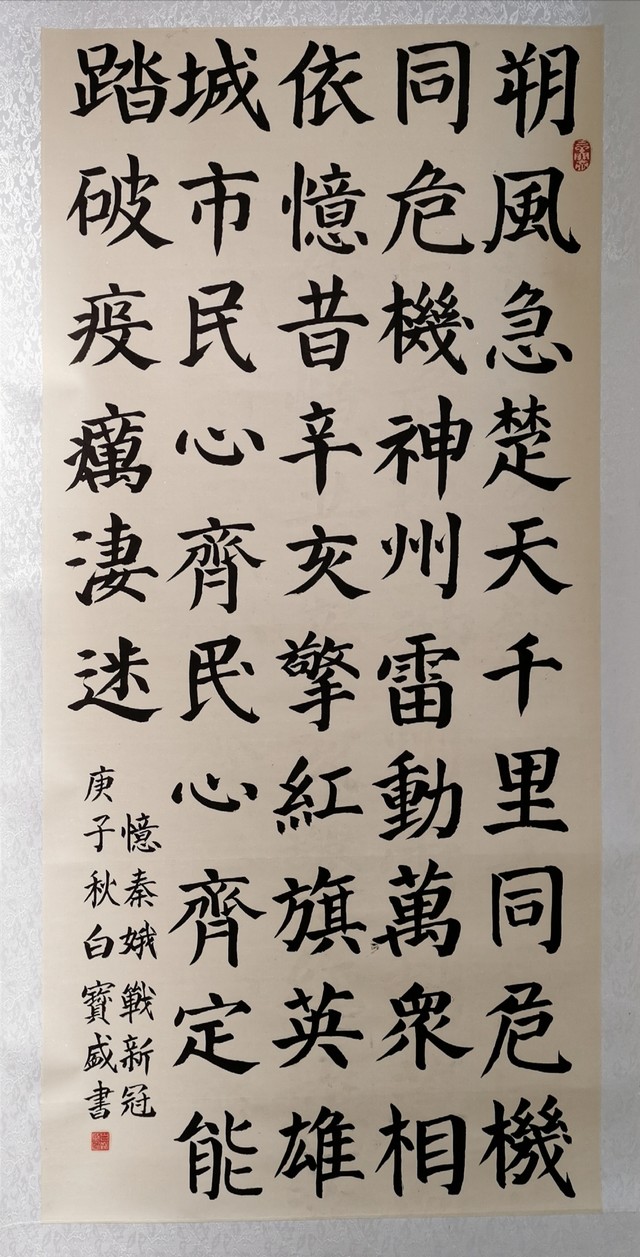 朔風急楚天千里同危機
同危機神州雷動萬眾相
依憶昔辛亥擎紅旗英雄
城市民心齊民心齊定能
踏破疫癘淒迷
憶秦娥戰新冠
庚子秋白寶盛書